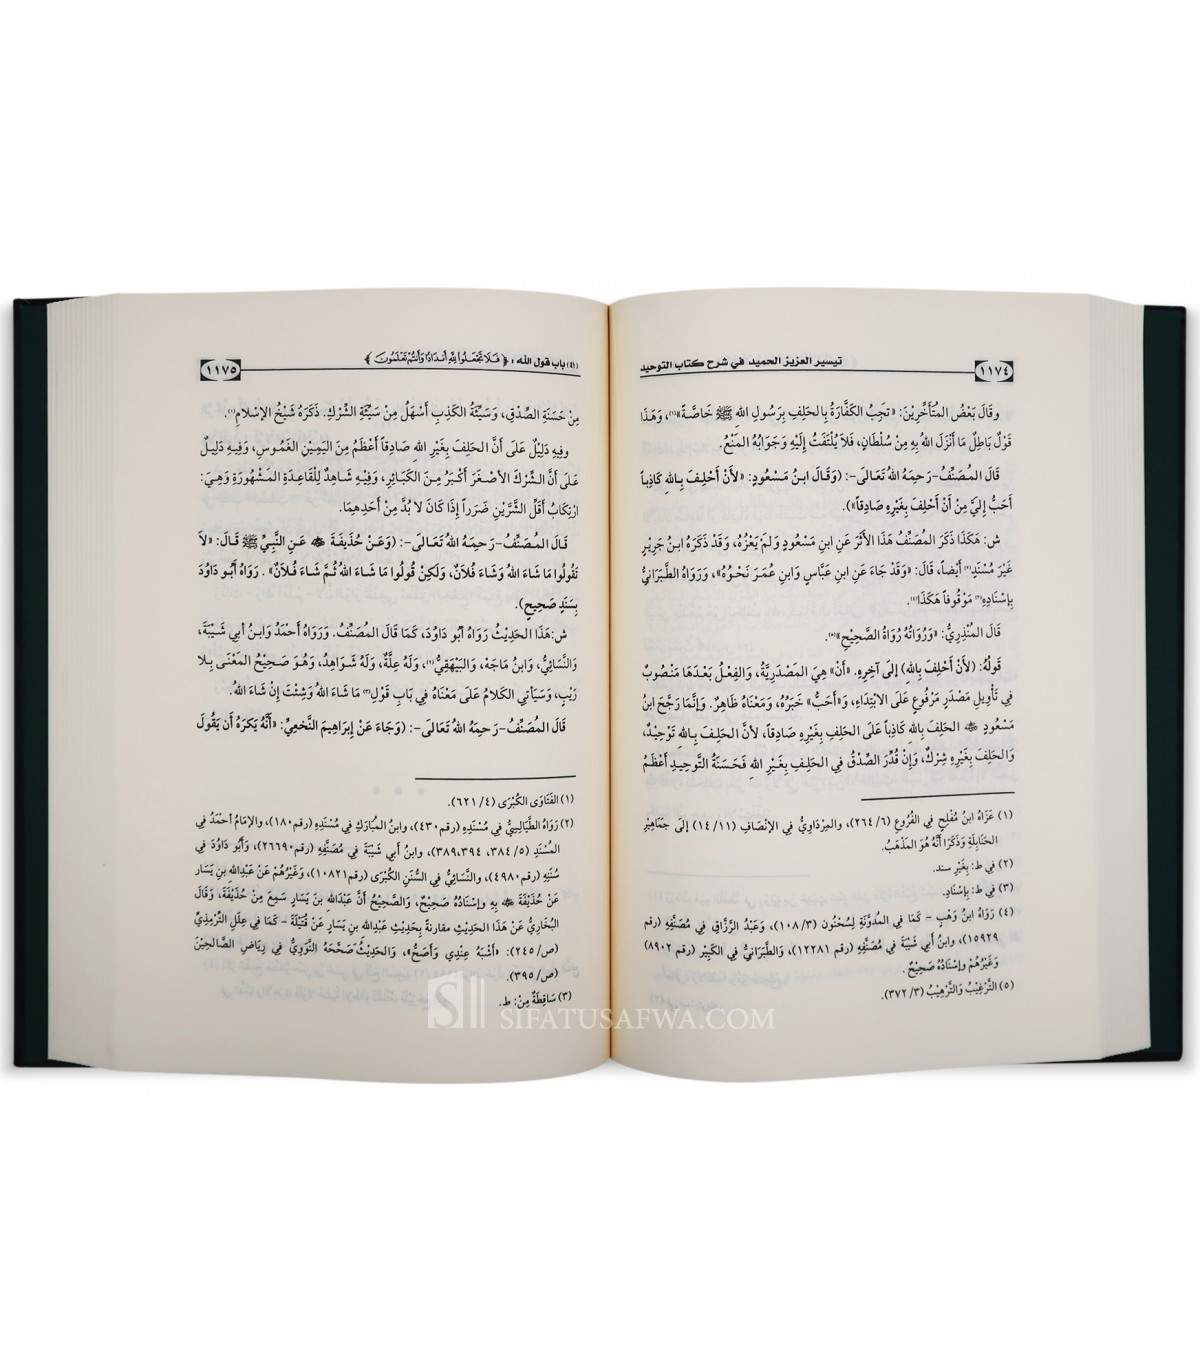 ١١٧٤
تيسير العزيز الحميد في شرح كتاب التوحيد
وقَالَ بَعْضُ المُتَأَخِّرِيْنَ: «تَجِبُ الكَفَّارَةُ بِالحَلِفِ بِرَسُولِ اللهِ ﷺ خَاصَّةً»(١)، وَهَذَا
قَوْلٌ بَاطِلٌ مَا أَنْزَلَ اللهُ بِهِ مِنْ سُلْطَانٍ، فَلاَ يُلْتَفَتُ إِلَيْهِ وَجَوَابُهُ المَنْعُ.
قَالَ المُصَنِّفُ-رَحِمَهُ اللهُ تَعَالَى-: (وَقَالَ ابنُ مَسْعُودٍ: «لأَنْ أَحْلِفَ بِاللهِ كَاذِباً
أَحَبُّ إِلَيَّ مِنْ أَنْ أَحْلِفَ بِغَيْرِهِ صَادِقاً»).
ش: هَكَذَا ذَكَرَ المُصَنِّفُ هَذَا الأَثَرَ عَنِ ابنِ مَسْعُودٍ وَلَمْ يَعْزُهُ، وَقَدْ ذَكَرَهُ ابنُ جَرِيْرٍ
غَيْرَ مُسْنَدٍ(٢) أَيْضاً، قَالَ: «وَقَدْ جَاءَ عَنِ ابنِ عَبَّاسٍ وَابنِ عُمَرَ نَحْوُهُ»، وَرَوَاهُ الطَّبَرَانِيُّ
بِإِسْنَادِهِ(٣) مَوْقُوفاً هَكَذَا(٤).
قَالَ المُنْذِرِيُّ: «وَرُوَاتُهُ رُوَاةُ الصَّحِيْحِ»(٥).
قَوْلُهُ: (لأَنْ أَحْلِفَ بِاللهِ) إلى آخِرِهِ. «أَنْ» هِيَ المَصْدَرِيَّةُ، وَالفِعْلُ بَعْدَهَا مَنْصُوبٌ
فِي تَأْوِيلِ مَصْدَرٍ مَرْفُوعٍ عَلَى الابْتِدَاءِ، وَ«أَحَبُّ» خَبَرُهُ، وَمَعْنَاهُ ظَاهِرٌ. وَإِنَّمَا رَجَّحَ ابنُ
مَسْعُودٍ ﵁ الحَلِفَ بِاللهِ كَاذِباً عَلَى الحَلِفِ بِغَيْرِهِ صَادِقاً، لأَنَّ الحَلِفَ بِاللهِ تَوْحِيْدٌ،
وَالحَلِفَ بِغَيْرِهِ شِرْكٌ، وَإِنْ قُدِّرَ الصِّدْقُ فِي الحَلِفِ بِغَيْرِ اللهِ فَحَسَنَةُ التَّوْحِيدِ أَعْظَمُ
(١) عَزَاهُ ابنُ مُفْلِحٍ فِي الفُرُوعِ (٦/ ٢٦٤)، والمِرْدَاوِيُّ فِي الإِنْصَافِ (١١/ ١٤) إِلَى جَمَاهِيْرِ
الحَنَابِلَةِ وَذَكَرَا أَنَّهُ هُوَ المَذْهَبُ.
(٢) فِي ط: بِغَيْرِ سند.
(٣) فِي ط: بِإِسْنَادٍ.
(٤) رَوَاهُ ابنُ وَهْبٍ - كَمَا فِي المُدَوَّنَةِ لِسُحْنُون (٣/ ١٠٨)، وَعَبْدُ الرَّزَّاقِ فِي مُصَنَّفِهِ (رقم
١٥٩٢٩)، وابنُ أَبِي شَيْبَةَ فِي مُصَنَّفِهِ (رقم ١٢٢٨١)، والطَّبَرَانِيُّ فِي الكَبِيْرِ (رقم ٨٩٠٢)
وَغَيْرُهُمْ وإِسْنَادُهُ صَحِيْحٌ.
(٥) التَّرْغِيْبُ وَالتَّرْهِيْبُ (٣/ ٣٧٢).
(٤١) باب قول الله : ﴿ فَلَا تَجْعَلُوا لِلَّهِ أَندَادًا وَأَنتُمْ تَعْلَمُونَ ﴾
١١٧٥
مِنْ حَسَنَةِ الصِّدْقِ، وَسَيِّئَةُ الكَذِبِ أَسْهَلُ مِنْ سَيِّئَةِ الشِّرْكِ. ذَكَرَهُ شَيْخُ الإِسْلامِ(١).
وفِيهِ دَلِيْلٌ عَلَى أَنَّ الحَلِفَ بِغَيْرِ اللهِ صَادِقاً أَعْظَمُ مِنَ اليَمِيْنِ الغَمُوسِ، وَفِيهِ دَلِيْلٌ
عَلَى أَنَّ الشِّرْكَ الأَصْغَرَ أَكْبَرُ مِنَ الكَبَائِرِ، وَفِيْهِ شَاهِدٌ لِلْقَاعِدَةِ المَشْهُورَةِ وَهِيَ:
ارْتِكَابُ أَقَلِّ الشَّرَّيْنِ ضَرَراً إِذَا كَانَ لا بُدَّ مِنْ أَحَدِهِمَا.
قَالَ المُصَنِّفُ-رَحِمَهُ اللهُ تَعَالَى-: (وَعَنْ حُذَيفَةَ ﵁ عَنِ النَّبِيِّ ﷺ قَالَ: «لاَ
تَقُولُوا مَا شَاءَ اللهُ وَشَاءَ فُلاَنٌ، وَلَكِنْ قُولُوا مَا شَاءَ اللهُ ثُمَّ شَاءَ فُلاَنٌ» . رَوَاهُ أَبُو دَاوُدَ
بِسَنَدٍ صَحِيحٍ).
ش: هَذَا الحَدِيْثُ رَوَاهُ أَبُو دَاوُدَ، كَمَا قَالَ المُصَنِّفُ. وَرَوَاهُ أَحْمَدُ وَابنُ أَبِي شَيْبَةَ،
وَالنَّسَائِيُّ، وَابنُ مَاجَهْ، وَالبَيْهَقِيُّ(٢)، وَلَهُ عِلَّةٌ، وَلَهُ شَوَاهِدُ، وَهُوَ صَحِيْحُ المَعْنَى بِلا
رَيْبٍ، وَسَيَأْتِي الكَلاَمُ عَلَى مَعْنَاهُ فِي بَابِ قَوْلِ(٣) مَا شَاءَ اللهُ وَشِئْتَ إِنْ شَاءَ اللهُ.
قَالَ المُصَنِّفُ-رَحِمَهُ اللهُ تَعَالَى-: (وَجَاءَ عَنْ إِبْرَاهِيمَ النَّخَعِيِّ: «أَنَّهُ يَكْرَهُ أَنْ يَقُولَ
(١) الفَتَاوَى الكُبْرَى (٤/ ٦٢١).
(٢) رَوَاهُ الطَّيَالِسِيُّ فِي مُسْنَدِهِ (رقم ٤٣٠)، وابنُ المُبَارَكِ فِي مُسْنَدِهِ (رقم ١٨٠)، والإِمَامُ أَحْمَدُ فِي
المُسْنَدِ (٥/ ٣٨٤، ٣٨٩،٣٩٤)، وابنُ أَبِي شَيْبَةَ فِي مُصَنَّفِهِ (رقم ٢٦٦٩٠)، وَأَبُو دَاوُدَ فِي
سُنَنِهِ (رقم ٤٩٨٠)، والنَّسَائِيُّ فِي السُّنَنِ الكُبْرَى (رقم ١٠٨٢١)، وَغَيْرُهُمْ عَنْ عَبْدِاللهِ بنِ يَسَارٍ
عَنْ حُذَيْفَةَ ﵁ بِهِ وإِسْنَادُهُ صَحِيْحٌ، وَالصَّحِيْحُ أَنَّ عَبْدَاللهِ بنَ يَسَارٍ سَمِعَ مِنْ حُذَيْفَةَ، وَقَالَ
البُخَارِيُّ عَنْ هَذَا الحَدِيْثِ مقارنةً بِحَدِيثِ عَبْدِاللهِ بنِ يَسَارٍ عَنْ قُتَيْلَةَ - كَمَا فِي عِلَلِ التِّرْمِذِيِّ
(ص/ ٢٤٥): «أَشْبَهُ عِنْدِي وَأَصَحُّ»، وَالحَدِيْثُ صَحَّحَهُ النَّوَوِيُّ فِي رِيَاضِ الصَّالِحِيْنَ
(ص/ ٣٩٥).
(٣) سَاقِطَةٌ مِنْ: ط.
SIFATUSAFWA.COM